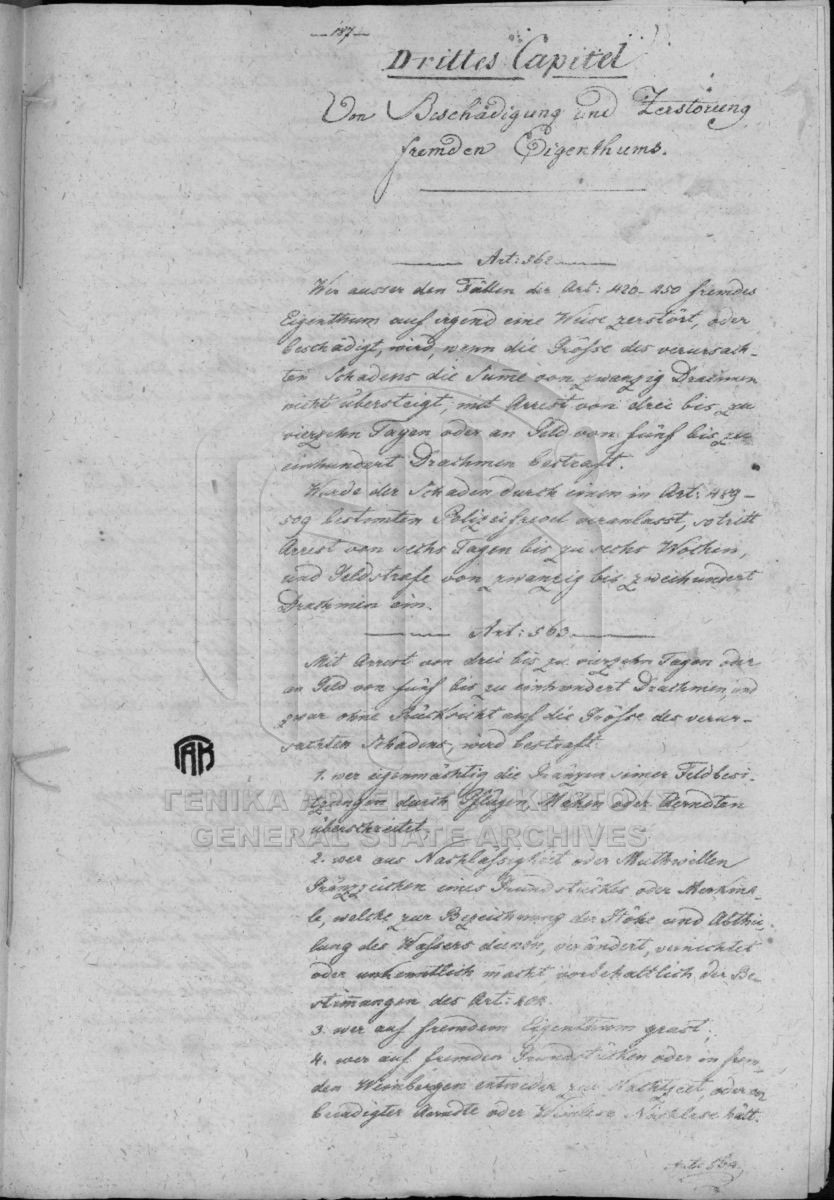 — 187 —
Drittes Capitel
Von Beschädigung und Zerstörung
fremden Eigenthums.
Art: 562
Wer ausser den Fällen der Art: 420-450 fremdes
Eigenthum auf irgend eine Weise zerstört, oder
beschädigt, wird, wenn die Größe des verursach-
ten Schadens die Sume von zwanzig Drachmen
nicht übersteigt, mit Arrest von drei bis zu
vierzehn Tagen oder an Geld von fünf bis zu
einhundert Drachmen bestraft.
Wurde der Schaden durch einen in Art: 489-
509 bestimten Polizeifrevel veranlasst, so tritt
Arrest von sechs Tagen bis zu sechs Wochen,
und Geldstrafe von zwanzig bis zweihundert
Drachmen ein.
Art: 563
Mit Arrest von drei bis zu vierzehn Tagen oder
an Geld von fünf bis zu einhundert Drachmen, und
zwar ohne Rücksicht auf die Größe des verur-
sachten Schadens, wird bestraft:
1. wer eigenmächtig die Gränzen seiner Feldbesi-
tzungen durch Pflügen, Mähen oder Aerndten
überschreitet,
ΓΕΝΙΚΑ ΑΡΧΕΙΑ ΤΟΥ ΚΡΑΤΟΥΣ
GENERAL STATE ARCHIVES
ΓΑΚ
2. wer aus Nachlässigkeit oder Muthwillen
Gränzzeichen eines Grundstückes oder Merkma-
le, welche zur Bezeichnung der Höhe und Abthei-
lung des Wassers dienen, verändert, vernichtet
oder unkenntlich macht, vorbehaltlich der Be-
stimungen des Art:
3. wer auf fremdem Eigenthum grast;
4. wer auf fremden Grundstücken oder in frem-
den Weinbergen entweder zur Nachtzeit, oder vor
beendigter Aerndte oder Weinlese Nachlese hält.
Art: 564